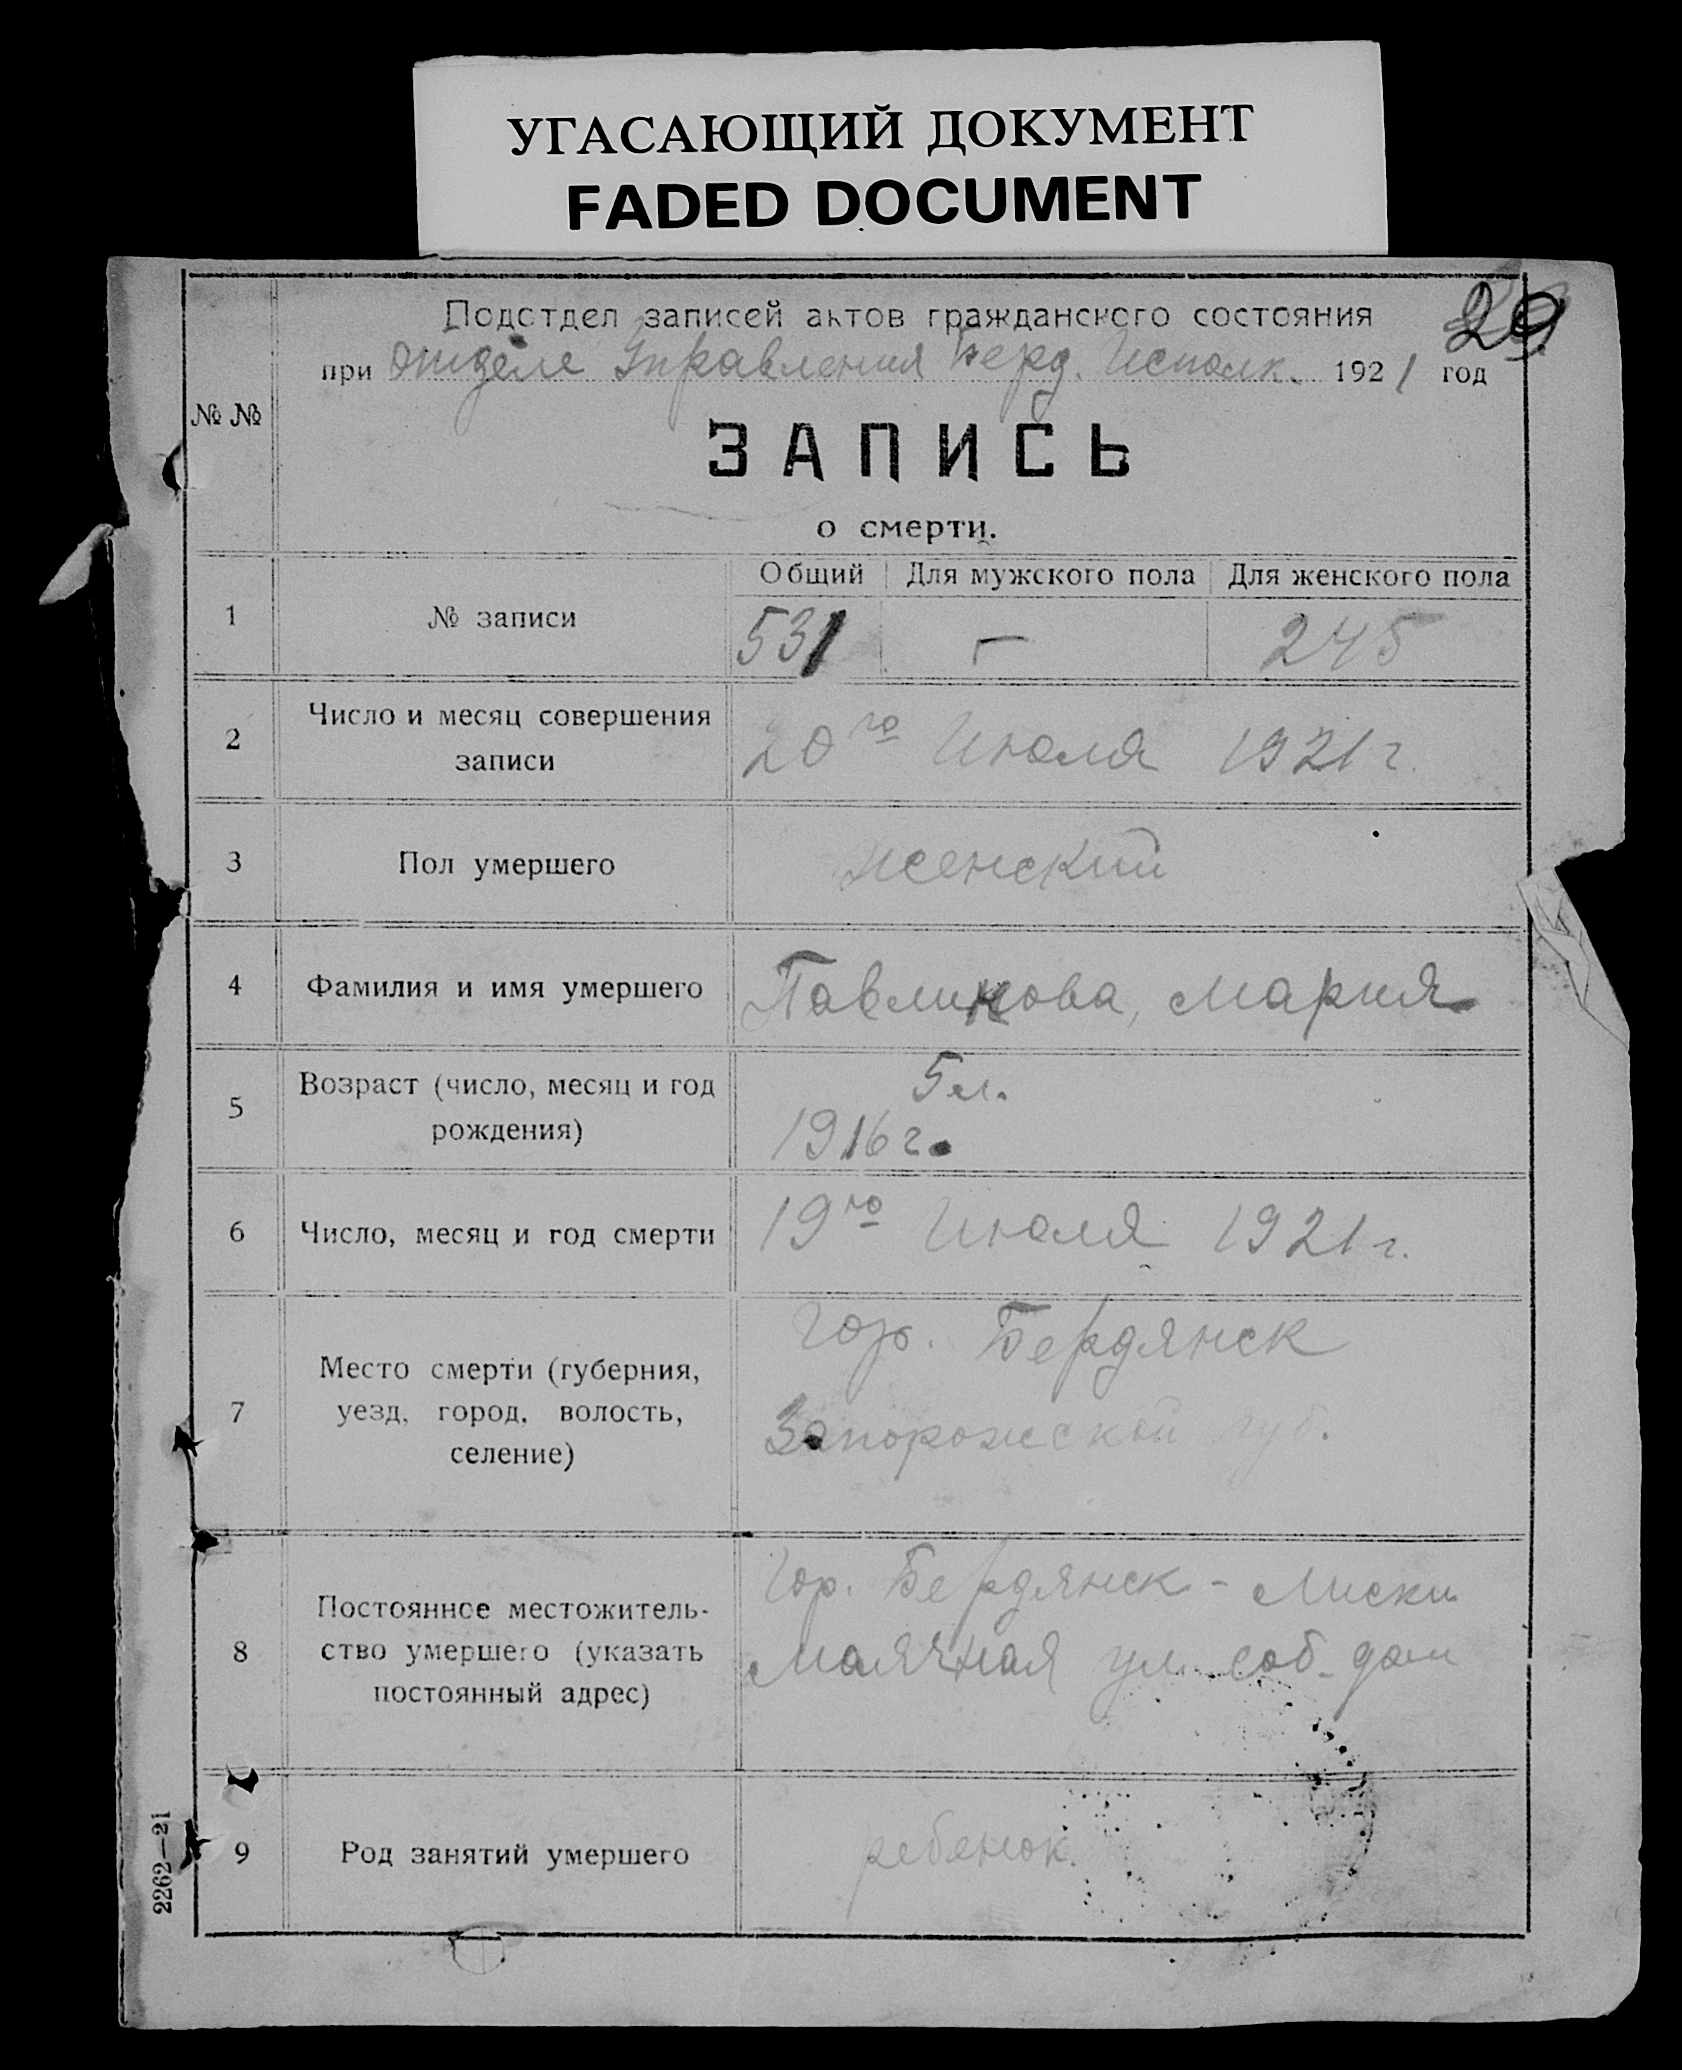 УГАСАЮЩИЙ ДОКУМЕНТ
FADED DOCUMENT
29
Подотдел записей актов гражданского состояния
при отделе Управления Берд. Исполк. 1921 год
№ №
ЗАПИСЬ
о смерти.
Общий Для мужского пола Для женского пола
1 № записи 531 — 245
2 Число и месяц совершения
записи
20го Июля 1921 г.
3 Пол умершего женский
4 Фамилия и имя умершего Павликова, Мария
5 Возраст (число, месяц и год
рождения)
5 л.
1916 г.
6 Число, месяц и год смерти 19го Июля 1921 г.
7 Место смерти (губерния,
уезд, город, волость,
селение)
гор. Бердянск
Запорожской губ.
8 Постоянное местожитель-
ство умершего (указать
постоянный адрес)
Гор. Бердянск - Лиски
Маячная ул. соб. дом
9 Род занятий умершего ребенок.
2262—21